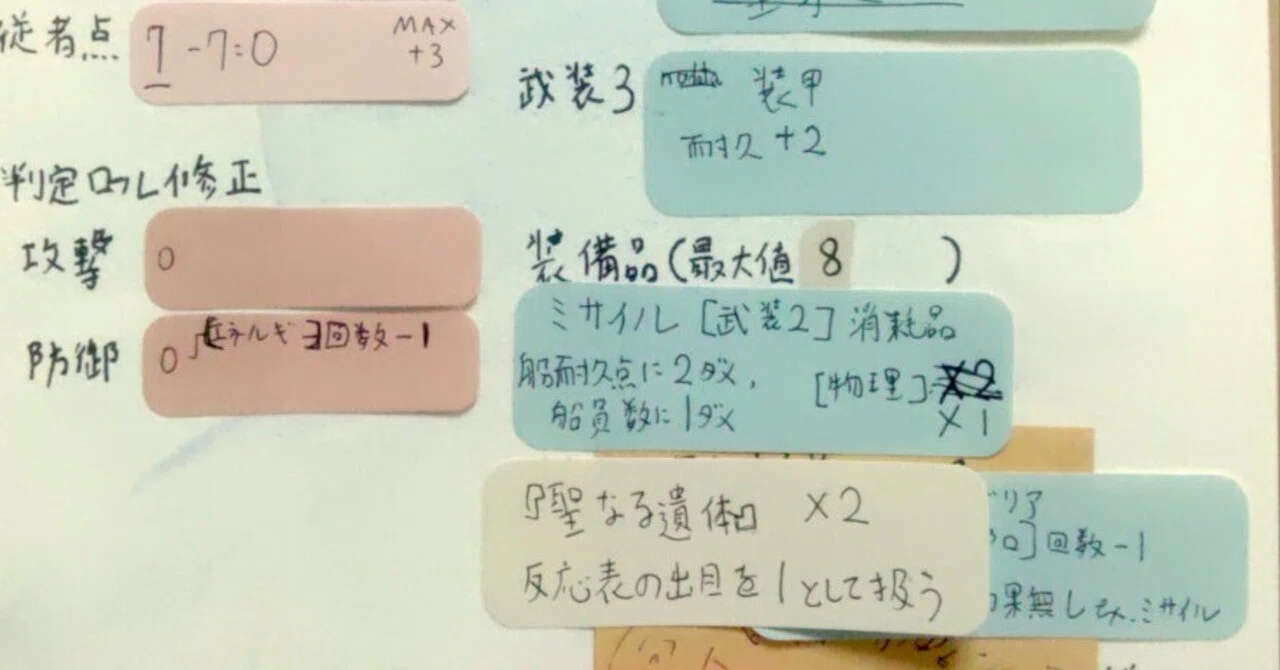 従者点
7 -7:0
MAX
+3
判定ロール修正
攻撃
0
防御
0 [エネルギー]回数-1
武装3
装甲
耐久+2
装備品(最大値 8 )
ミサイル [武装2] 消耗品
船耐久点に2ダメ,
船員数に1ダメ
[物理]
×1
『聖なる遺体』 ×2
反応表の出目を1として扱う
リア
]回数-1
果無し ミサイル